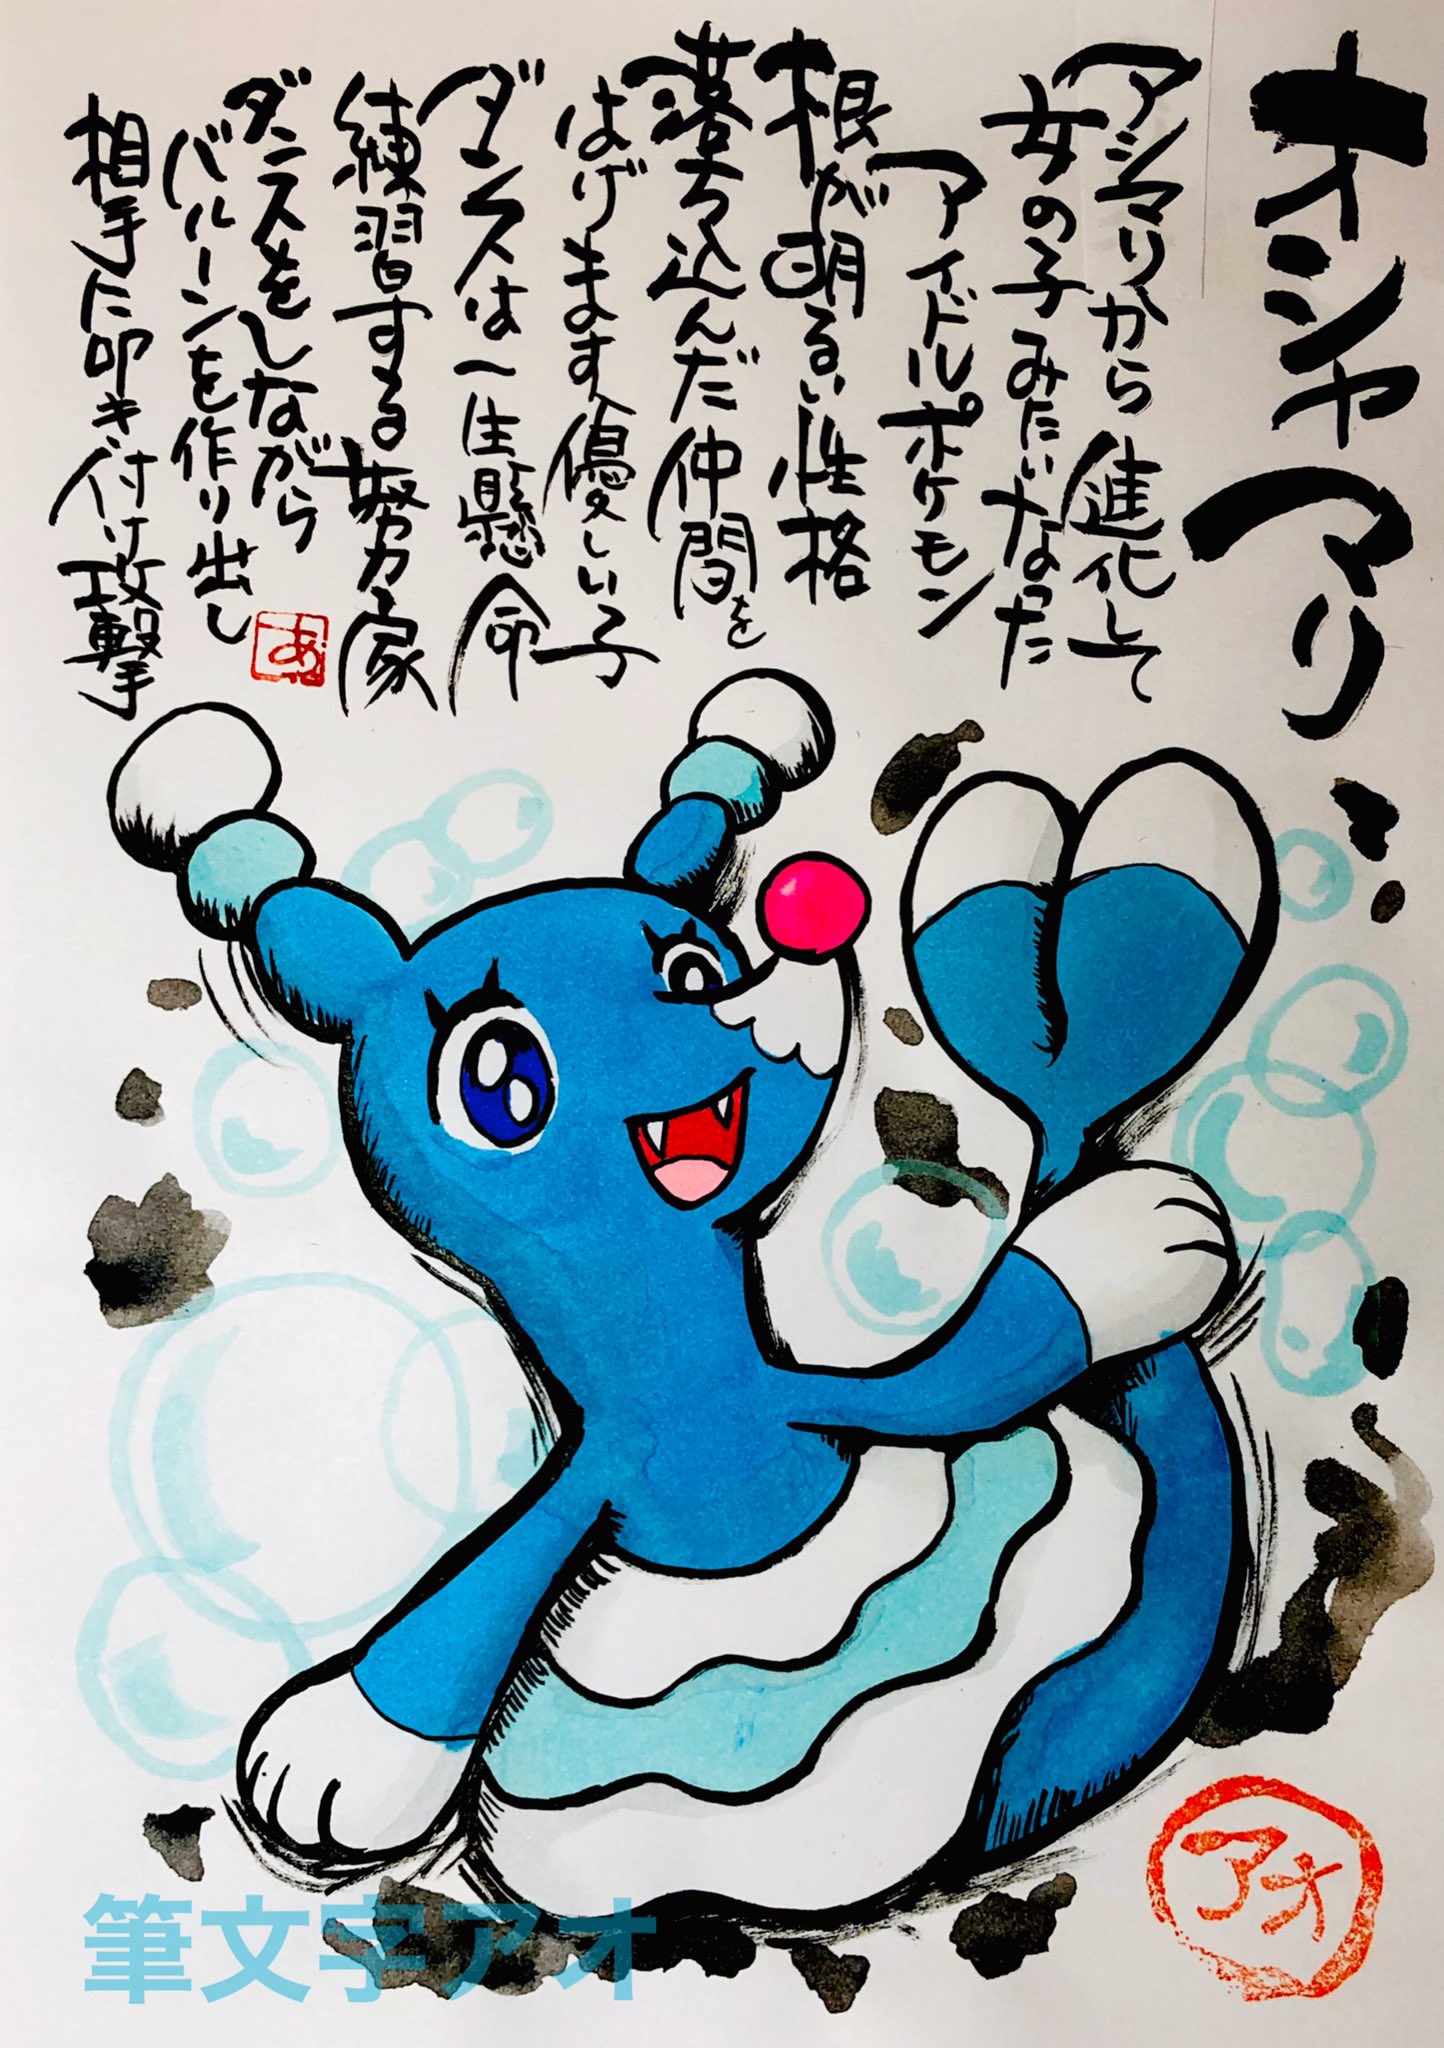 オシャマリ
アシマリから進化して
女の子みたいなった
アイドルポケモン
根が明るい性格
落ち込んだ仲間を
はげます優しい子
ダンスは一生懸命
練習する努力家
ダンスをしながら
バルーンを作り出し
相手に叩き付け攻撃
あ
アオ
筆文字アオ